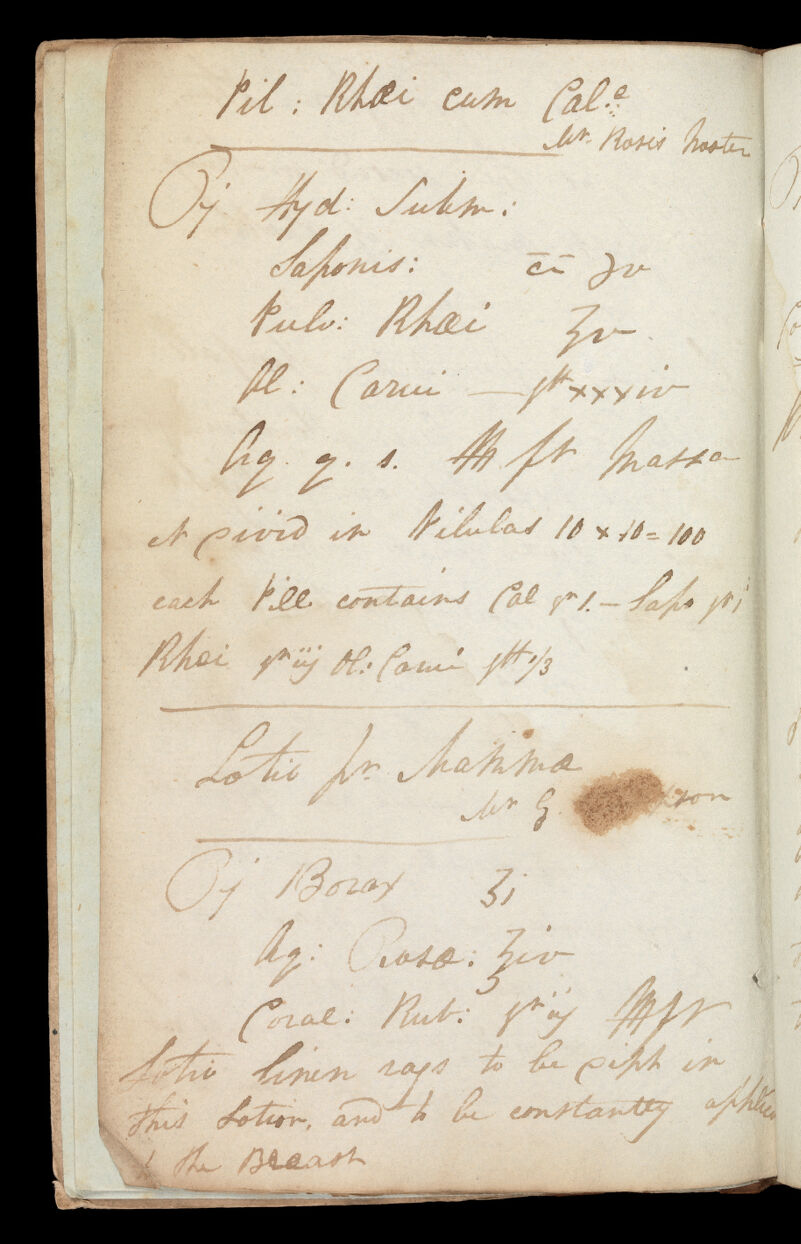 Pil: Rhæi cum Cal:e
Mr. Rosis
Rj Hyd: Subm:
Saponis: āā ℈v
Pulv: Rhæi ʒv
Ol: Carui — gtt xxxiv
Aq. q. s. M ft Massa
et divid in Pilulas 10 x 10 = 100
each Pill contains Cal gr 1. — Sapo gr i
Rhæi gr iij Ol: Carui gtt 1/3
Lotio pr. Mammæ
Mr G.
Rj Borax ʒi
Aq: Rosæ: ℥iv
Coral: Rub: gr iij M ft
Lotio linen rags to be dipt in
this Lotion, and to be constantly applied
to the Breast